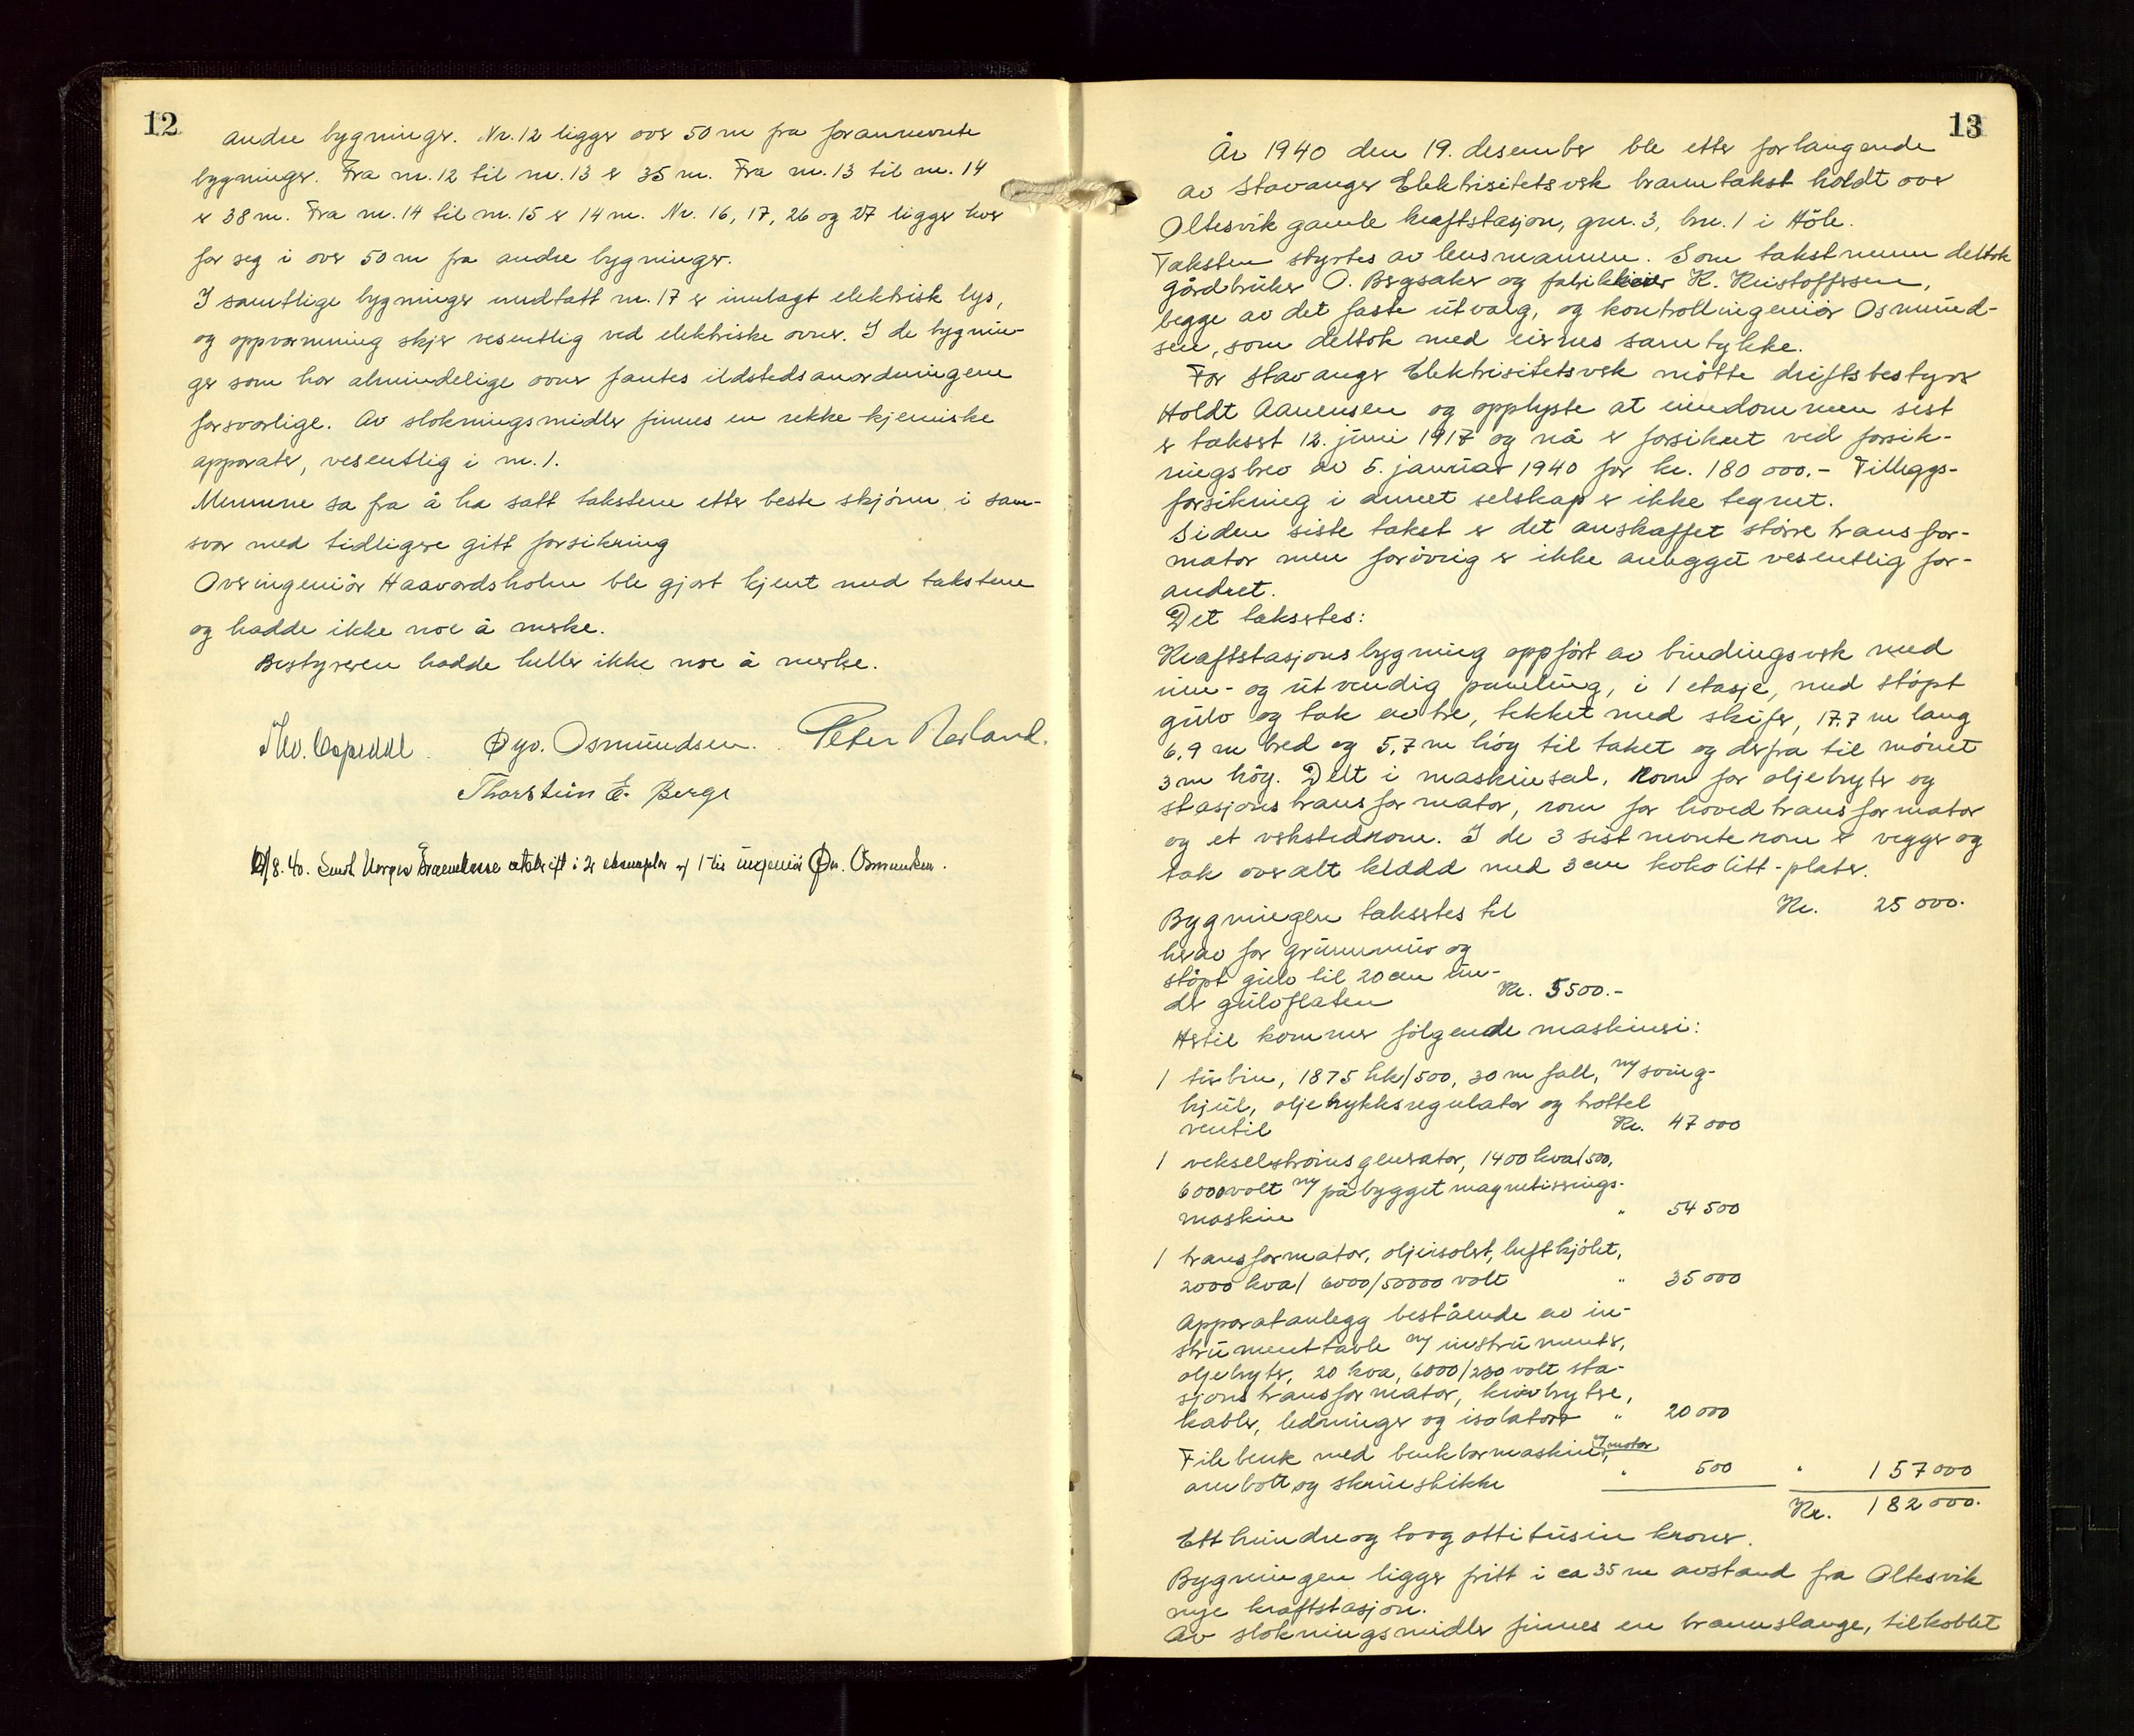 12
andre bygninger. Nr. 12 ligger over 50 m fra forannevnte
bygninger. Fra nr. 12 til nr. 13 er 35 m. Fra nr. 13 til nr. 14
er 38 m. Fra nr. 14 til nr. 15 er 14 m. Nr. 16, 17, 26 og 27 ligger hver
for seg i over 50 m fra andre bygninger.
I samtlige bygninger undtatt nr. 17 er innlagt elektrisk lys,
og oppvarmning skjer vesentlig ved elektriske ovner. I de bygnin-
ger som har almindelige ovner fantes ildstedsanordningene
forsvarlige. Av slokningsmidler finnes en rekke kjemiske
apparater, vesentlig i nr. 1.
Mennene sa fra å ha satt takstene etter beste skjönn, i sam-
svar med tidligere gitt forsikring
Overingeniör Haavardsholm ble gjort kjent med takstene
og hadde ikke noe å merke.
Bestyreren hadde heller ikke noe å merke.
Öyv. Osmundsen. Peter
Thorstein E. Berge
/8. 40. Sendt Norges Brannkasse utskrift i 2 eksemplar m/ 1 til ingeniör Öyv. Osmundsen.
13
År 1940 den 19. desember ble etter forlangende
av Stavanger Elektrisitetsverk branntakst holdt over
Oltesvik gamle kraftstasjon, gnr. 3, bnr. 1 i Höle.
Taksten styrtes av lensmannen. Som takstmenn deltok
gårdbruker O. Bergsaker og fabrikkeier K. Kristoffersen,
begge av det faste utvalg, og kontrollingeniör Osmund-
sen, som deltok med eierens samtykke.
For Stavanger Elektrisitetsverk mötte driftsbestyrer
Holdt Aanensen og opplyste at eiendommen sist
er taksert 12. juni 1917 og nå er forsikret ved forsik-
ringsbrev av 5. januar 1940 for kr. 180 000.- Tilleggs-
forsikring i annet selskap er ikke tegnet.
Siden siste takst er det anskaffet större transfor-
mator men forövrig er ikke anlegget vesentlig for-
andret.
Det taksertes:
Kraftstasjonsbygning oppfört av bindingsverk med
inn- og utvendig paneling, i 1 etasje, med stöpt
gulv og tak av tre, tekket med skifer, 17.7 m lang
6,9 m bred og 5,7 m höy til taket og derfra til mönet
3 m höy. Delt i maskinsal, rom for oljebryter og
stasjonstransformator, rom for hovedtransformator
og et verkstedrom. I de 3 sistnevnte rom er vegger og
tak overalt kledd med 3 cm kokolitt-plater.
Bygningen taksertes til Kr. 25 000.
herav for grunnmur og
stöpt gulv til 20 cm un-
der gulvflaten Kr. 5500.-
Hertil kommer fölgende maskineri:
1 turbin, 1875 hk/500, 30 m fall, m/ sving-
hjul, oljetrykksregulator og trottel
ventil Kr. 47 000
1 vekselströmsgenerator, 1400 kva/500,
6000 volt m/ påbygget magnetiserings-
maskin " 54 500
1 transformator, oljeisolert, luftkjölet,
2000 kva/ 6000/50000 volt " 35 000
Apparatanlegg bestående av in-
strumenttavle m/ instrumenter,
oljebryter, 20 kva, 6000/230 volt sta-
sjonstransformator, knivbrytere,
kabler, ledninger og isolatorer " 20 000
Filebenk med benkbormaskin m/motor,
ambolt og skruestikke " 500 " 157 000
Kr. 182 000.
Ett hundre og to og otti tusin kroner.
Bygningen ligger fritt i ca 35 m avstand fra Oltesvik
nye kraftstasjon.
Av slokningsmidler finnes en brannslange, tilkoblet